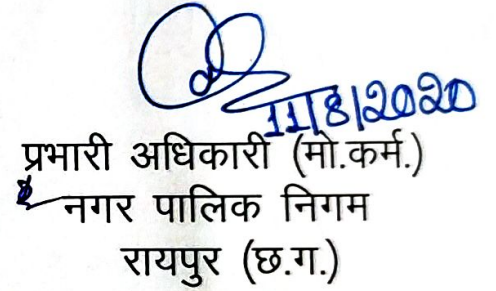 11/8/2020
प्रभारी अधिकारी (मो.कर्म.)
नगर पालिक निगम
रायपुर (छ.ग.)